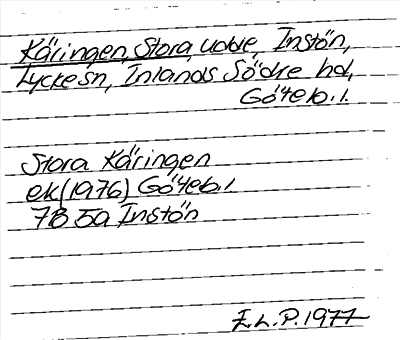 Käringen, Stora, udde, Instön,
Lyckesn, Inlands Södre hd,
Göteb.l.
Stora Käringen
ek (1976) Göteb.l
7B 5a Instön
E.L.P. 1977